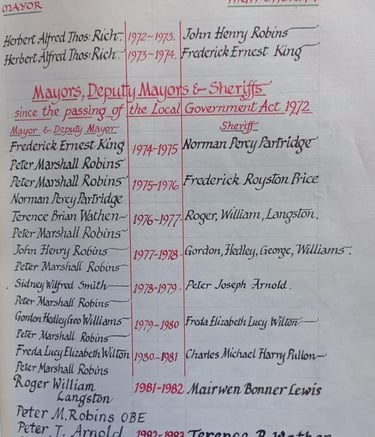 MAYOR
Herbert Alfred Thos: Rich. 1972-1973. John Henry Robins
Herbert Alfred Thos: Rich. 1973-1974. Frederick Ernest King
Mayors, Deputy Mayors & Sheriffs
since the passing of the Local Government Act 1972
Mayor & Deputy Mayor Sheriff
Frederick Ernest King 1974-1975 Norman Percy Partridge
Peter Marshall Robins
Peter Marshall Robins 1975-1976 Frederick Royston Price
Norman Percy Partridge
Terence Brian Wathen 1976-1977 Roger, William, Langston.
Peter Marshall Robins
John Henry Robins 1977-1978 Gordon, Hedley, George, Williams.
Peter Marshall Robins
Sidney Wilfred Smith 1978-1979. Peter Joseph Arnold.
Peter Marshall Robins
Gordon Hedley Geo Williams 1979-1980 Freda Elizabeth Lucy Wilton
Peter Marshall Robins
Freda Lucy Elizabeth Wilton 1980-1981 Charles Michael Harry Pullon
Peter Marshall Robins
Roger William 1981-1982 Mairwen Bonner Lewis
Langston
Peter M. Robins OBE
Peter J. Arnold 1982-1983 Terence B. Wathen